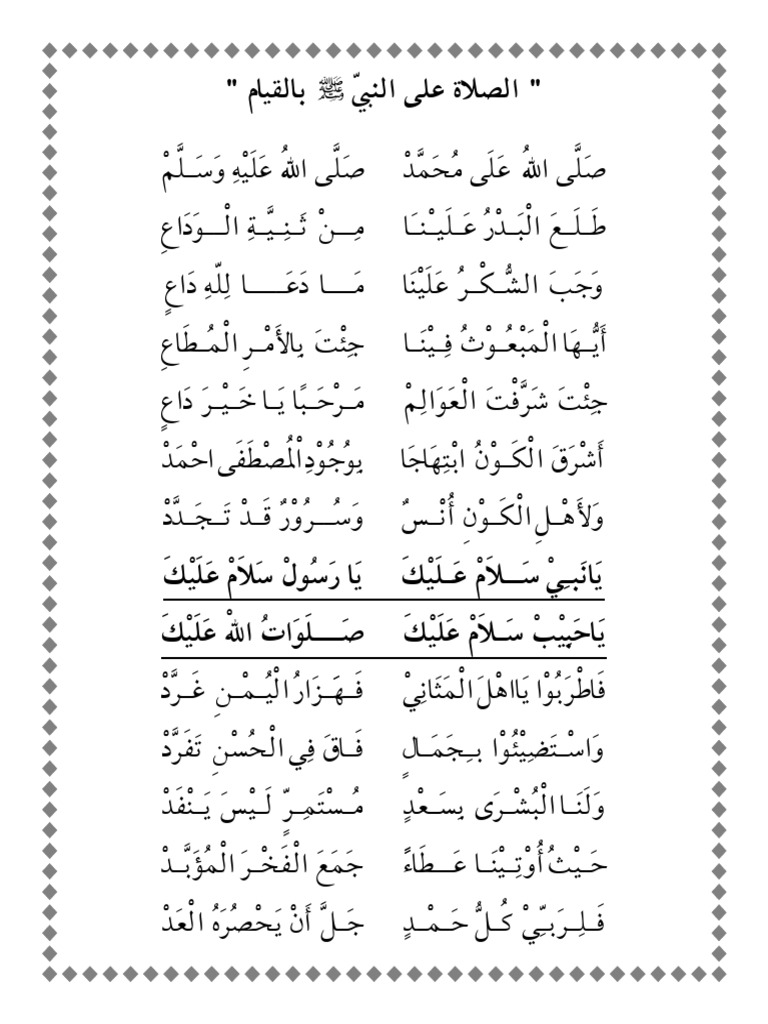 " الصلاة على النبيّ ﷺ بالقيام "
صَلَّى اللهُ عَلَى مُحَمَّدْ صَلَّى اللهُ عَلَيْهِ وَسَلَّمْ
طَلَعَ الْبَدْرُ عَلَيْنَا مِنْ ثَنِيَّةِ الْوَدَاعِ
وَجَبَ الشُّكْرُ عَلَيْنَا مَا دَعَا لِلّهِ دَاعٍ
أَيُّهَا الْمَبْعُوْثُ فِيْنَا جِئْتَ بِالأَمْرِ الْمُطَاعِ
جِئْتَ شَرَّفْتَ الْعَوَالِمْ مَرْحَبًا يَا خَيْرَ دَاعٍ
أَشْرَقَ الْكَوْنُ ابْتِهَاجَا بِوُجُوْدِالْمُصْطَفَى احْمَدْ
وَلأَهْلِ الْكَوْنِ أُنْسٌ وَسُرُوْرٌ قَدْ تَجَدَّدْ
يَانَبِيْ سَلاَمْ عَلَيْكَ يَا رَسُولْ سَلاَمْ عَلَيْكَ
يَاحَبِيْبْ سَلاَمْ عَلَيْكَ صَلَوَاتُ اللهْ عَلَيْكَ
فَاطْرَبُوْا يَااهْلَ الْمَثَانِيْ فَهَزَارُ الْيُمْنِ غَرَّدْ
وَاسْتَضِيْئُوْا بِجَمَالٍ فَاقَ فِي الْحُسْنِ تَفَرَّدْ
وَلَنَا الْبُشْرَى بِسَعْدٍ مُسْتَمِرٍّ لَيْسَ يَنْفَدْ
حَيْثُ أُوْتِيْنَا عَطَاءً جَمَعَ الْفَخْرَ الْمُؤَبَّدْ
فَلِرَبِّيْ كُلُّ حَمْدٍ جَلَّ أَنْ يَحْصُرَهُ الْعَدْ